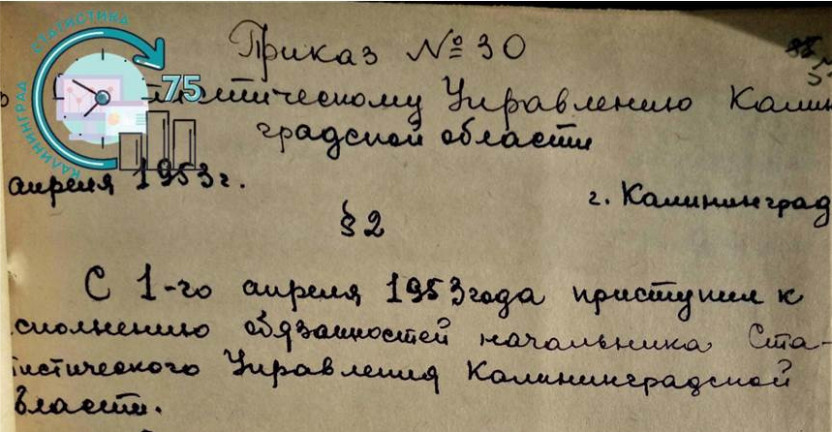 СТАТИСТИКА
КАЛИНИНГРАД
75
Приказ № 30
тистическому Управлению Калин
градской области
апреля 1953г.
г. Калининград
§ 2
С 1-го апреля 1953 года приступил к
сполнению обязанностей начальника Ста-
тистического Управления Калининградской
бласти.